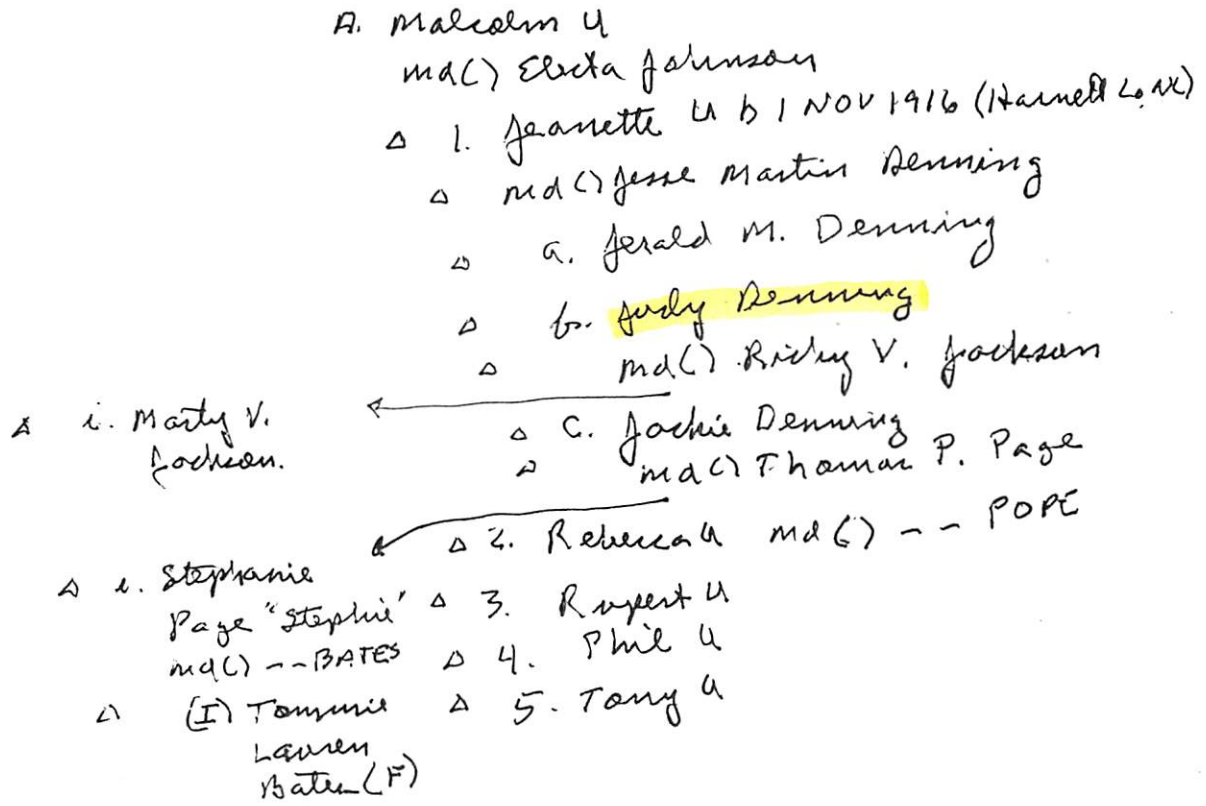 A. Malcolm U
md() Electa Johnson
Δ 1. Jeanette U b 1 NOV 1916 (Harnett Co NC)
Δ md() Jesse Martin Denning
Δ a. Jerald M. Denning
Δ b. Judy Denning
Δ md() Ricky V. Jackson
Δ i. Marty V.
Jackson.
Δ C. Jackie Denning
Δ md() Thomas P. Page
Δ 2. Rebecca U md() -- POPE
Δ i. Stephanie
Page "Stephie"
md() -- BATES
Δ (I) Tommie
Lauren
Bates (F)
Δ 3. Rupert U
Δ 4. Phil U
Δ 5. Tony U